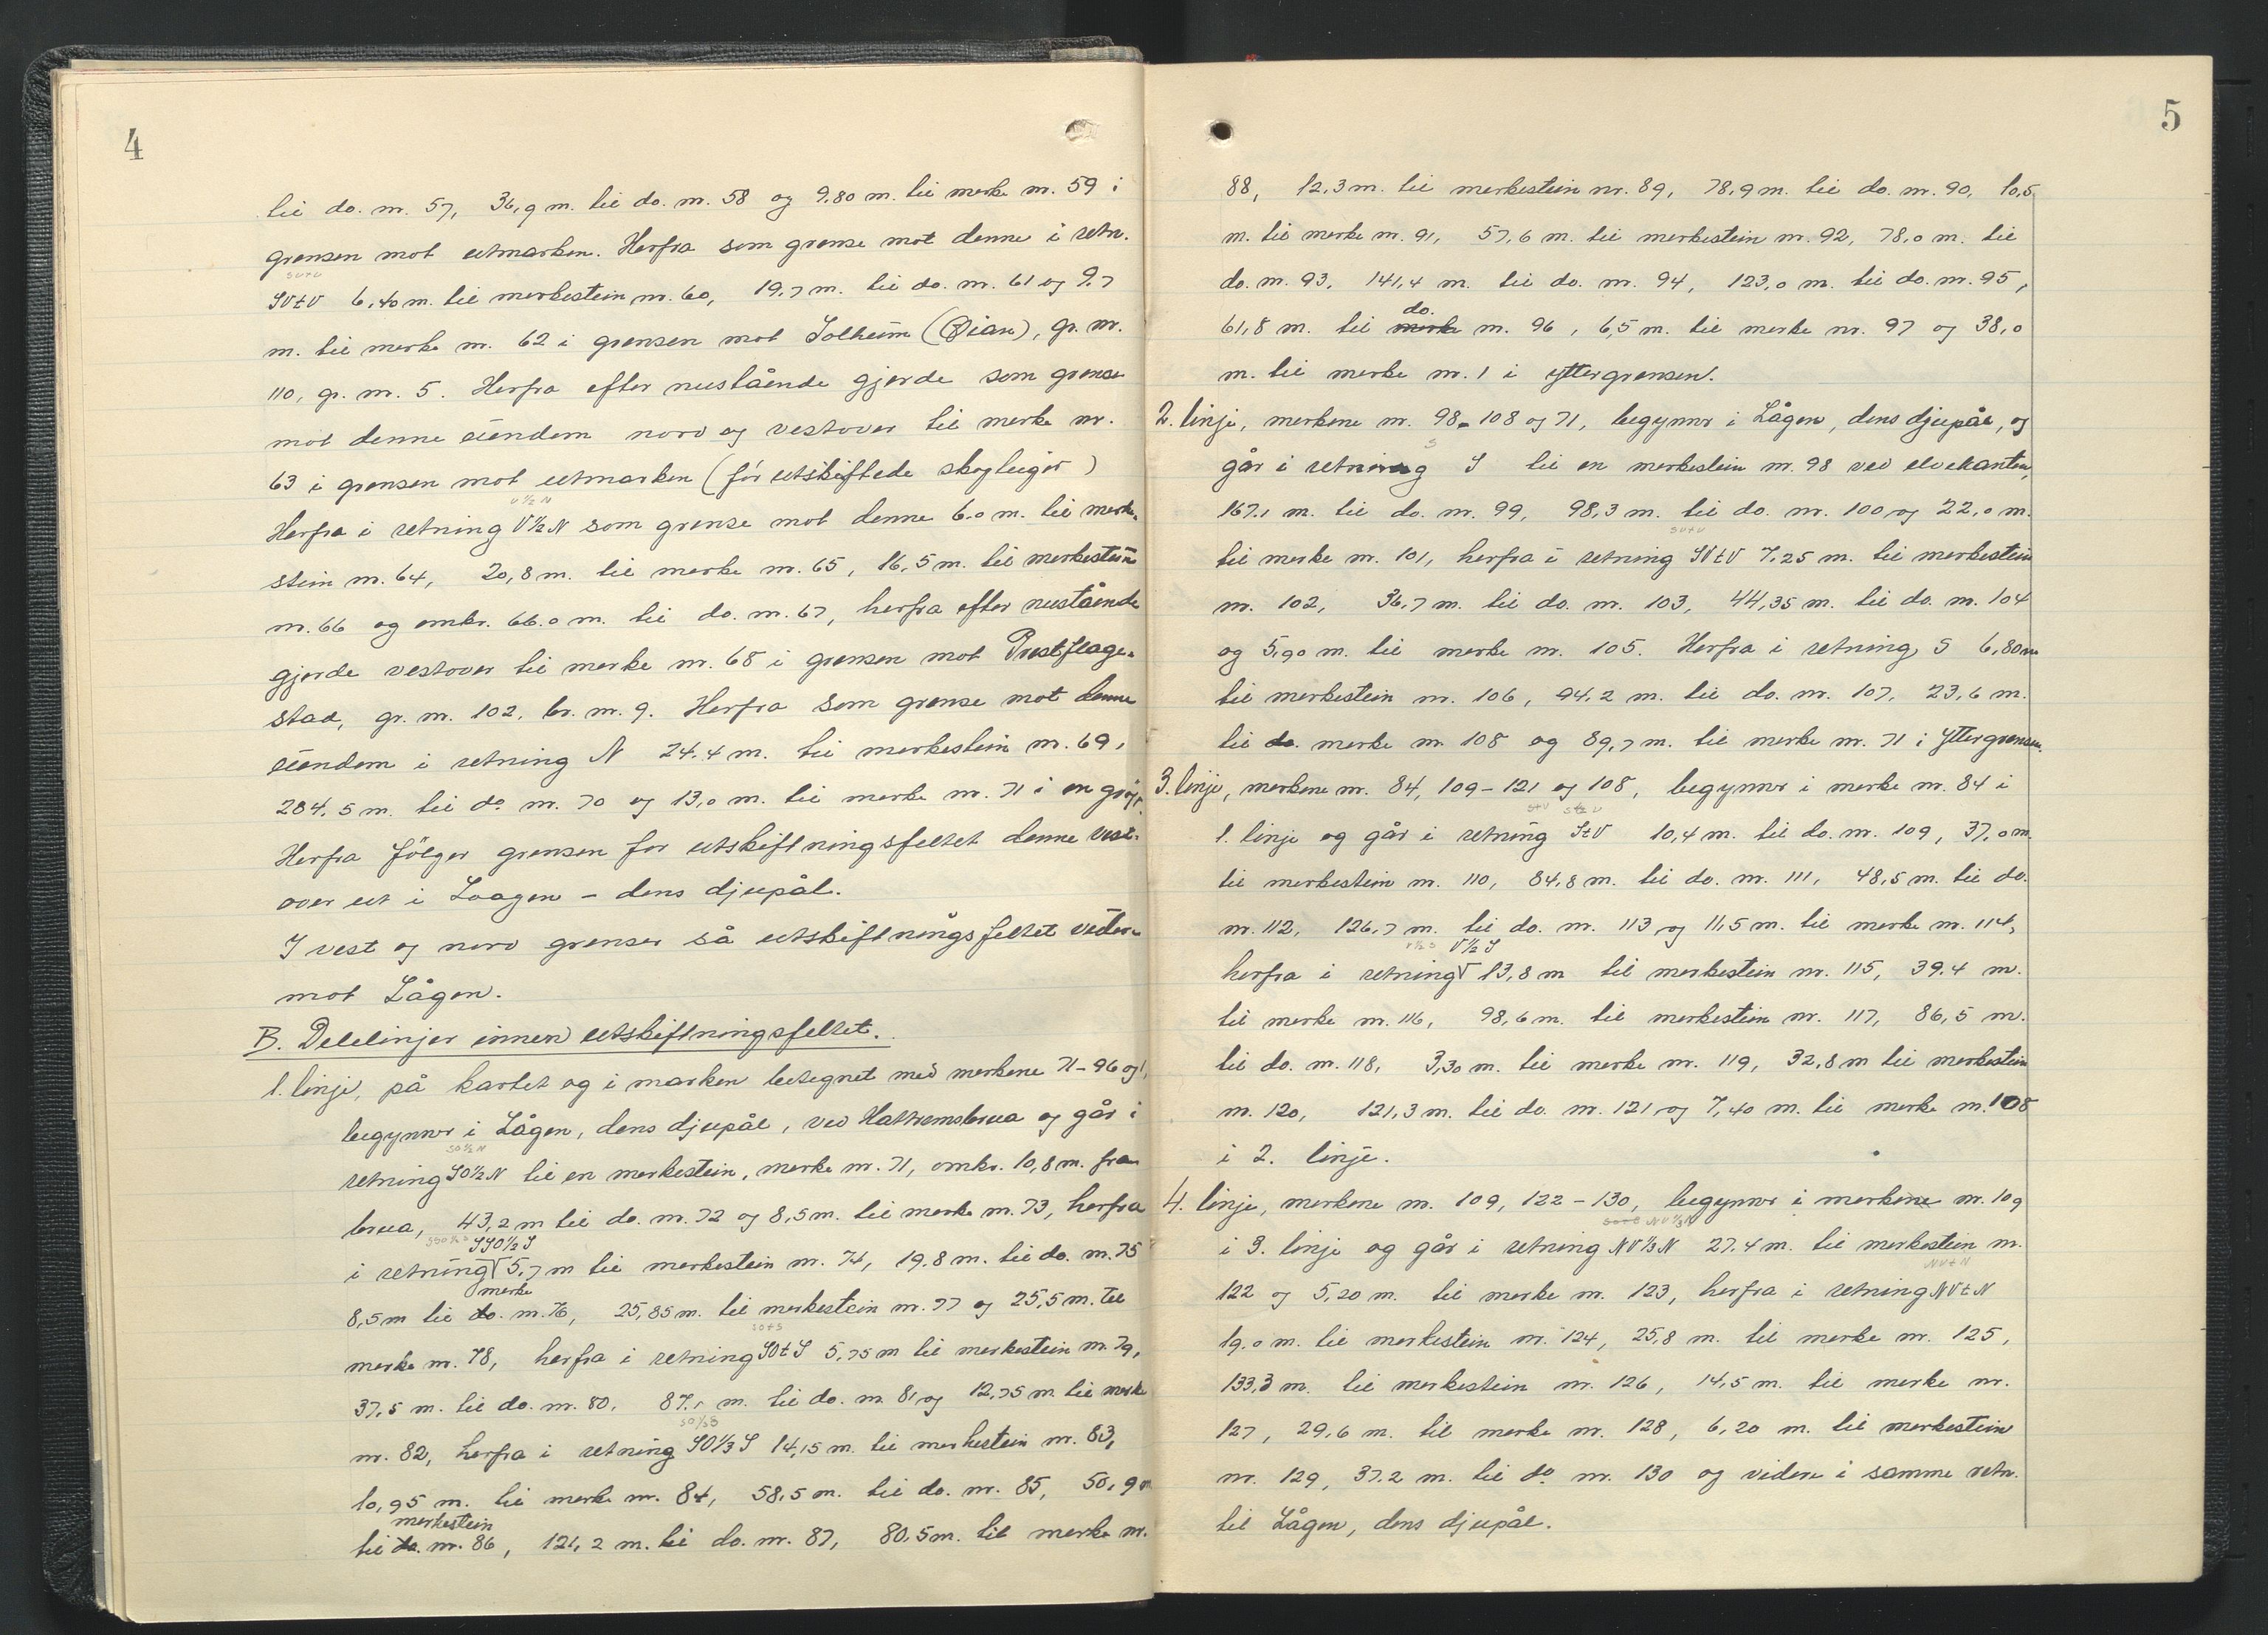 4
til do. nr. 57, 36,9 m. til do. nr. 58 og 9.80 m. til merke nr. 59 i
grensen mot utmarken. Herfra som grense mot denne i retn.
SVtV
SVtV 6,40 m. til merkestein nr. 60, 19,7 m. til do. nr. 61 og 9,7
m. til merke nr. 62 i grensen mot Solheim (Øian), gr. nr.
110, gr. nr. 5. Herfra efter nustående gjerde som grense
mot denne eiendom nord og vestover til merke nr.
63 i grensen mot utmarken (før utskiftede skogteiger)
V ½ N
Herfra i retning V½N som grense mot denne 6.0 m. til merke-
stein nr. 64, 20,8 m. til merke nr. 65, 16,5 m. til merkestein
nr. 66 og omkr. 66.0 m. til do. nr. 67, herfra efter nustående
gjerde vestover til merke nr. 68 i grensen mot Prestflage-
stad, gr. nr. 102, br. nr. 9. Herfra som grense mot denne
eiendom i retning N 24.4 m. til merkestein nr. 69,
284,5 m. til do nr. 70 og 13,0 m. til merke nr. 71 i en grøft.
Herfra følger grensen for utskiftningsfeltet denne vest-
over ut i Laagen - dens djupål.
I vest og nord grenser så utskiftningsfeltet videre
mot Lågen.
B. Delelinjer innen utskiftningsfeltet.
1. linje, på kartet og i marken betegnet med merkene 71-96 og 1,
begynner i Lågen, dens djupål, ved Hattremsbrua og går i
SO ½ N
retning SO½N til en merkestein, merke nr. 71, omkr. 10,8 m. fra
brua, 43,2 m til do. nr. 72 og 8,5 m. til merke nr. 73, herfra
SSO½S
i retning 5,7 m til merkestein nr. 74, 19.8 m. til do. nr. 75
merke
8,5 m til do. nr. 76, 25,85 m. til merkestein nr. 77 og 25,5 m. til
SOtS
merke nr. 78, herfra i retning SOtS 5,75 m til merkestein nr. 79,
37,5 m. til do. nr. 80, 87,1 m. til do. nr. 81 og 12,75 m. til merke
SO⅓S
nr. 82, herfra i retning SO⅓S 14,15 m. til merkestein nr. 83,
10,95 m. til merke nr. 84, 58,5 m. til do. nr. 85, 50,9 m
merkestein
til do. nr. 86, 121,2 m. til do. nr. 87, 80,5 m. til merke nr.
5
88, 12,3 m. til merkestein nr. 89, 78,9 m. til do. nr. 90, 10,5
m. til merke nr. 91, 57,6 m. til merkestein nr. 92, 78,0 m. til
do. nr. 93, 141,4 m. til do. nr. 94, 123,0 m. til do. nr. 95,
do.
61,8 m. til merke nr. 96, 6,5 m. til merke nr. 97 og 38,0
m. til merke nr. 1 i yttergrensen.
2. linje, merkene nr. 98-108 og 71, begynner i Lågen, dens djupål, og
S
går i retning S til en merkestein nr. 98 ved elvekanten,
167,1 m. til do. nr. 99, 98,3 m. til do. nr. 100 og 22,0 m.
SVtV
til merke nr. 101, herfra i retning SVtV 7,25 m. til merkestein
nr. 102, 36,7 m. til do. nr. 103, 44,35 m. til do. nr. 104
og 5,90 m. til merke nr. 105. Herfra i retning S 6,80 m
til merkestein nr. 106, 94,2 m. til do. nr. 107, 23,6 m.
til do. merke nr 108 og 89,7 m. til merke nr. 71 i yttergrensen.
3. linje, merkene nr. 84, 109-121 og 108, begynner i merke nr. 84 i
StV
1. linje og går i retning StV 10,4 m. til do. nr. 109, 37,0 m.
til merkestein nr. 110, 84,8 m. til do. nr. 111, 48,5 m. til do.
nr. 112, 126,7 m. til do. nr. 113 og 11,5 m. til merke nr. 114,
V½S V½S
herfra i retning 13,8 m til merkestein nr. 115, 39.4 m.
til merke nr. 116, 98,6 m. til merkestein nr. 117, 86,5 m.
til do. nr. 118, 3,30 m. til merke nr. 119, 32,8 m til merkestein
nr. 120, 121,3 m. til do. nr. 121 og 7,40 m. til merke nr. 108
i 2. linje.
4. linje, merkene nr. 109, 122-130, begynner i merkene nr. 109
NV⅓N
i 3. linje og går i retning NV⅓N 27.4 m. til merkestein nr.
NVtN
122 og 5,20 m. til merke nr. 123, herfra i retning NVtN
19.0 m. til merkestein nr. 124, 25,8 m. til merke nr. 125,
133,3 m. til merkestein nr. 126, 14,5 m. til merke nr.
127, 29,6 m. til merke nr. 128, 6,20 m. til merkestein
nr. 129, 37.2 m. til do nr. 130 og videre i samme retn.
til Lågen, dens djupål.